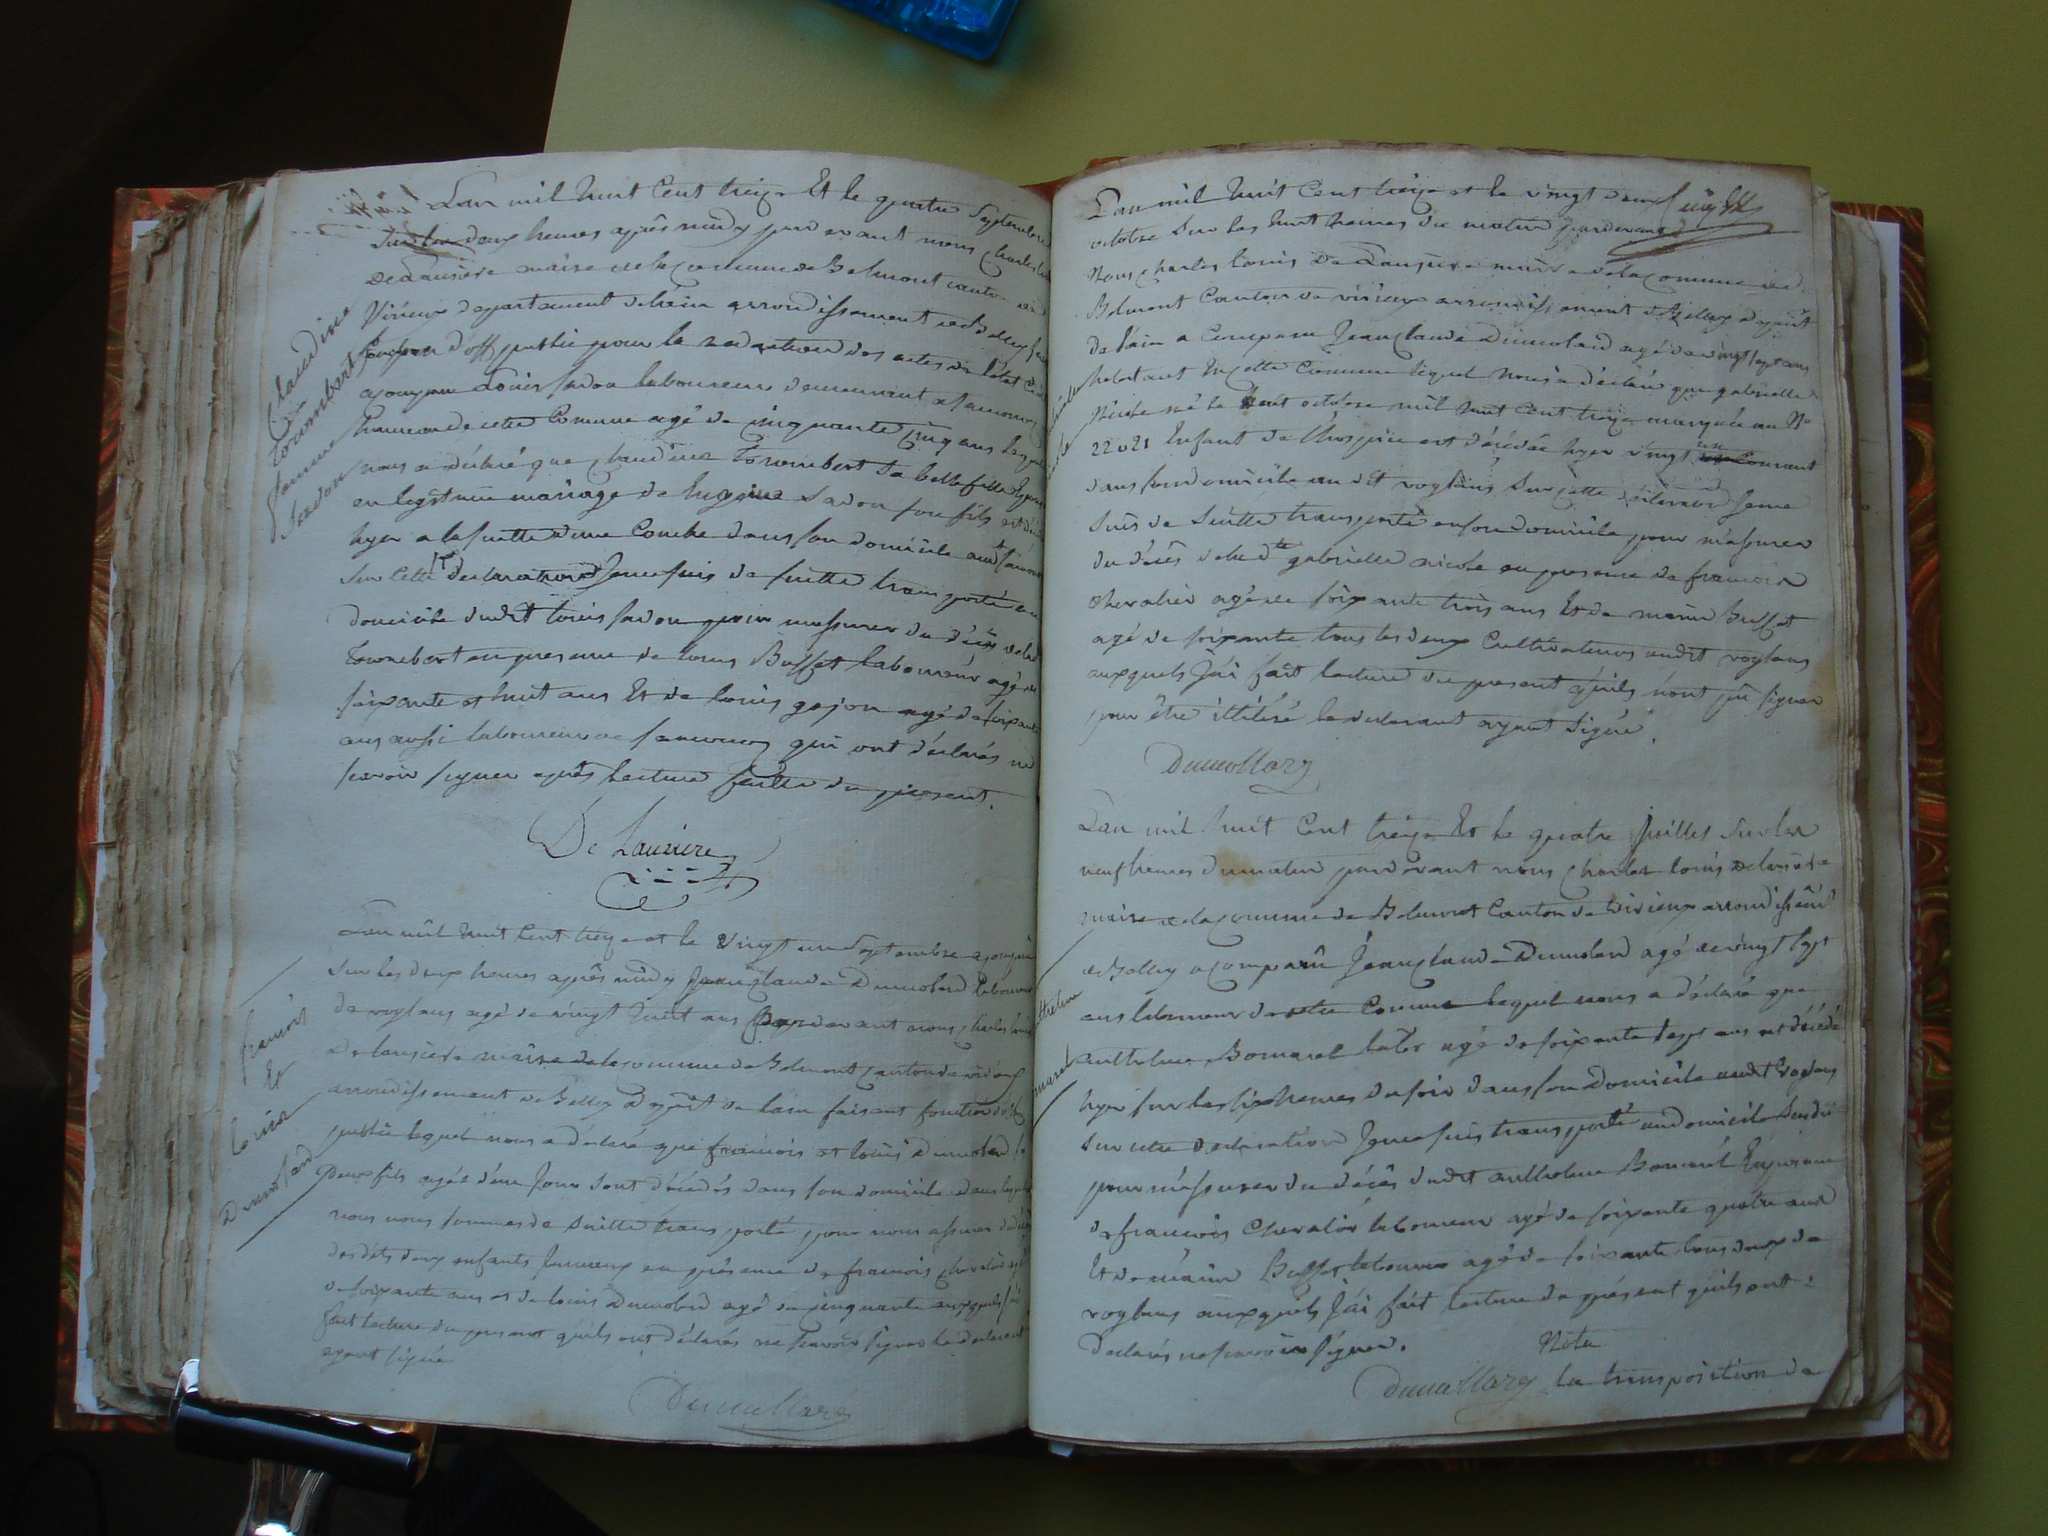 Lan mil huit Cent treize Et le quatre Septembre
Sur les deux heures après midy pardevant nous Charles Louis
De Lauziere maire de la Commune de Belmont canton de
Virieux departement de lain arrondissement de Belley
d'off public pour la redaction des actes de l'état
a comparu Louis Sadon laboureur demeurant a
hameau de cette Commune agé de cinquante cinq ans lequel
nous a déclaré que Claudine Tournebert sa belle fille
en legitime mariage de Sadon son fils est
hyer a la suitte dune Couche dans son domicile
Sur Cette declaration Je me suis de suitte transporté au
domicile dudit Louis Sadon pour massurer du décès de la
Tournebert en presence de Louis Buffet laboureur agé de
soixante et huit ans Et de Louis gojon agé de soixante
ans aussi laboureur a qui ont déclarés ne
scavoir signer après lecture faitte du present.
De Lauziere
Claudine
Tournebert
femme
Sadon
Lan mil huit Cent treize et le vingt un Septembre a comparu
Sur les deux heures après midy Jean Claude Dumolard laboureur
de voglans agé de vingt huit ans Pardevant nous Charles Louis
De lauziere maire de la commune de Belmont Canton de virieux
arrondissement de Belley depart de lain faisant fonction
public lequel nous a déclaré que francois et louis Dumolard
Deux fils agés d'un Jour sont décédés dans son domicile
nous nous sommes de suitte transporté pour nous assurer
des dits deux enfants Jumeaux en présence de francois Chevalier
de soixante ans et de louis Dumolard agé de cinquante auxquels
fait lecture du present qu'ils ont déclarés ne scavoir signer le declarant
ayant signé
Dumollard
francois
Et
louis
Dumolard
Lan mil huit Cent treize et le vingt deux
octobre Sur les huit heures du matin pardevant
Nous Charles Louis De Lauziere maire de la Commune de
Belmont Canton de virieux arrondissement de Belley depart
de lain a Comparu Jean Claude Dumolard agé de vingt sept ans
habitant En cette Commune lequel nous a déclaré que gabrielle
Nicole né le huit octobre mil huit Cent treize marquée au No
22021 Enfant de l'hospice est décédée hyer vingt un Courant
dans son domicile au dit voglans Sur Cette déclaration Je me
Suis de Suitte transporté en son domicile pour m'assurer
du décès de la dte gabrielle nicole en presence de francois
Chevalier agé de soixante trois ans Et de Buffet
agé de soixante tous les deux Cultivateurs audit voglans
auxquels J'ai fait lecture du present qu'ils n'ont pu signer
pour être illitéré le declarant ayant Signé.
Dumollard
Lan mil huit Cent treize Et le quatre Juillet Sur les
neuf heures du matin pardevant nous Charles Louis de lauziere
maire de la commune de Belmont Canton de Virieux arrondissemt
de Belley a Comparu Jean Claude Dumolard agé de vingt sept
ans laboureur de cette Commune lequel nous a déclaré que
anthelme Bomarel agé de soixante sept ans est décédé
hyer sur les six heures du soir dans son Domicile audit Voglans
Sur cette declaration Je me suis transporté au domicile Susdit
pour m'assurer du décès dudit anthelme Bomarel En presence
de francois Chevalier laboureur agé de soixante quatre ans
Et de Buffet laboureur agé de soixante tous deux de
voglans auxquels J'ai fait lecture du présent qu'ils ont
Déclarés ne scavoir signer.
Nota
Dumollard la transposition de